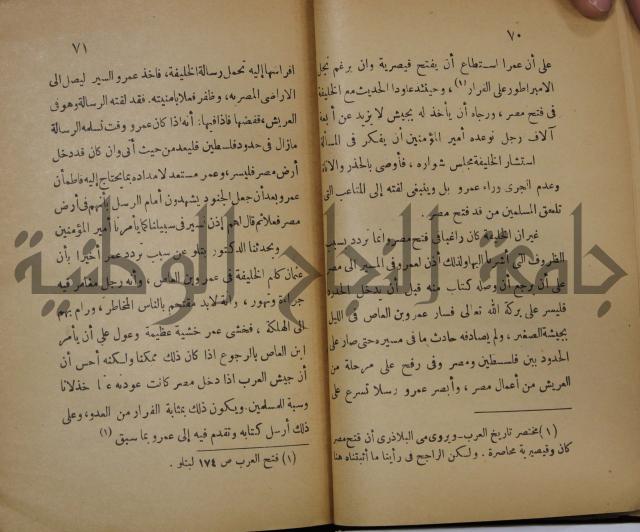 ٧٠
على أن عمرا استطاع أن يفتح قيصرية وان يرغم نجل
الامبراطور على الفرار (١) ، وحينئذ عاود الحديث مع الخليفة
فى فتح مصر ، ورجاه أن يأخذ له بجيش لا يزيد عن أربعة
آلاف رجل فوعده أمير المؤمنين أن يفكر فى المسألة
استشار الخليفة مجلس شواره ، فأوصى بالحذر والاناة
وعدم الجرى وراء عمرو بل وينبغى لفته إلى المتاعب التى
تلحق المسلمين من قد فتح مصر .
غير ان الخليفة كان راغبا فى فتح مصر وانما تردد بسبب
الظروف التى أشرنا اليها ولذلك أذن لعمرو فى المسير الى مصر
على أن يرجع ان وصله كتاب منه قبل أن يدخل الحدود
فليسر على بركة الله تعالى فسار عمرو بن العاص فى الليل
بجيشه الصغير ، ولم يصادفه حادث ما فى مسيره حتى صار على
الحدود بين فلسطين ومصر وفى رفح على مرحلة من
العريش من أعمال مصر ، وأبصر عمرو رسلا تسرع على
(١) مختصر تاريخ العرب - ويروى من البلاذرى أن فتح مصر
كان وقيصرية محاصرة . ولكن الراجح فى رأينا ما أثبتناه هنا
٧١
افراسها إليه تحمل رسالة الخليفة ، فاخذ عمرو السير ليصل الى
الاراضى المصريه ، وظفر فعلا بامنيته . فقد لقته الرسالة وهو فى
العريش ، ففضها فاذا فيها : أنه اذا كان عمرو وقت تسلمه الرسالة
مازال فى حدود فلسطين فليعد من حيث أتى وان كان قد دخل
أرض مصر فليسر ، وعمر مستعد لامداده بما يحتاج إليه فاطمأن
عمرو بعد أن جعل الجنود يشهدون أمام الرسل بأنهم فى أرض
مصر فعلا ثم قال اهم إذن نسير فى سبيلنا كما يأمرنا أمير المؤمنين
ويحدثنا الدكتور بتلو عن سبب تردد عمر أخيرا بأن
عثمان كلم الخليفة فى عمرو بن العاص ، وأنه رجل مغامر فيه
جراءة وتهور ، وانه لا بد مقتحم بالناس المخاطر ، ورام بهم
الى الهلكة ، فخشى عمر خشية عظيمة وعول على أن يأمر
ابن العاص بالرجوع اذا كان ذلك ممكنا ولكنه أحس أن
أن جيش العرب اذا دخل مصر كانت عودته خذلانا
وسبة للمسلمين . ويكون ذلك بمثابة الفرار من العدو ، وعلى
ذلك أرسل كتابه وتقدم فيه إلى عمرو بما سبق (١)
(١) فتح العرب ص ١٧٤ لبتلو .
جامعة النجاح الوطنية